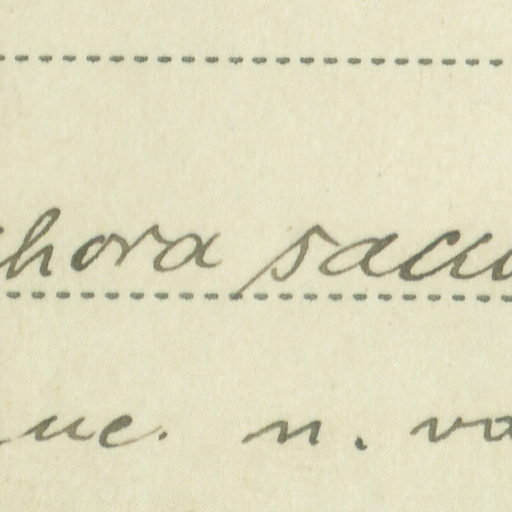 hora sacc
uc. n. va